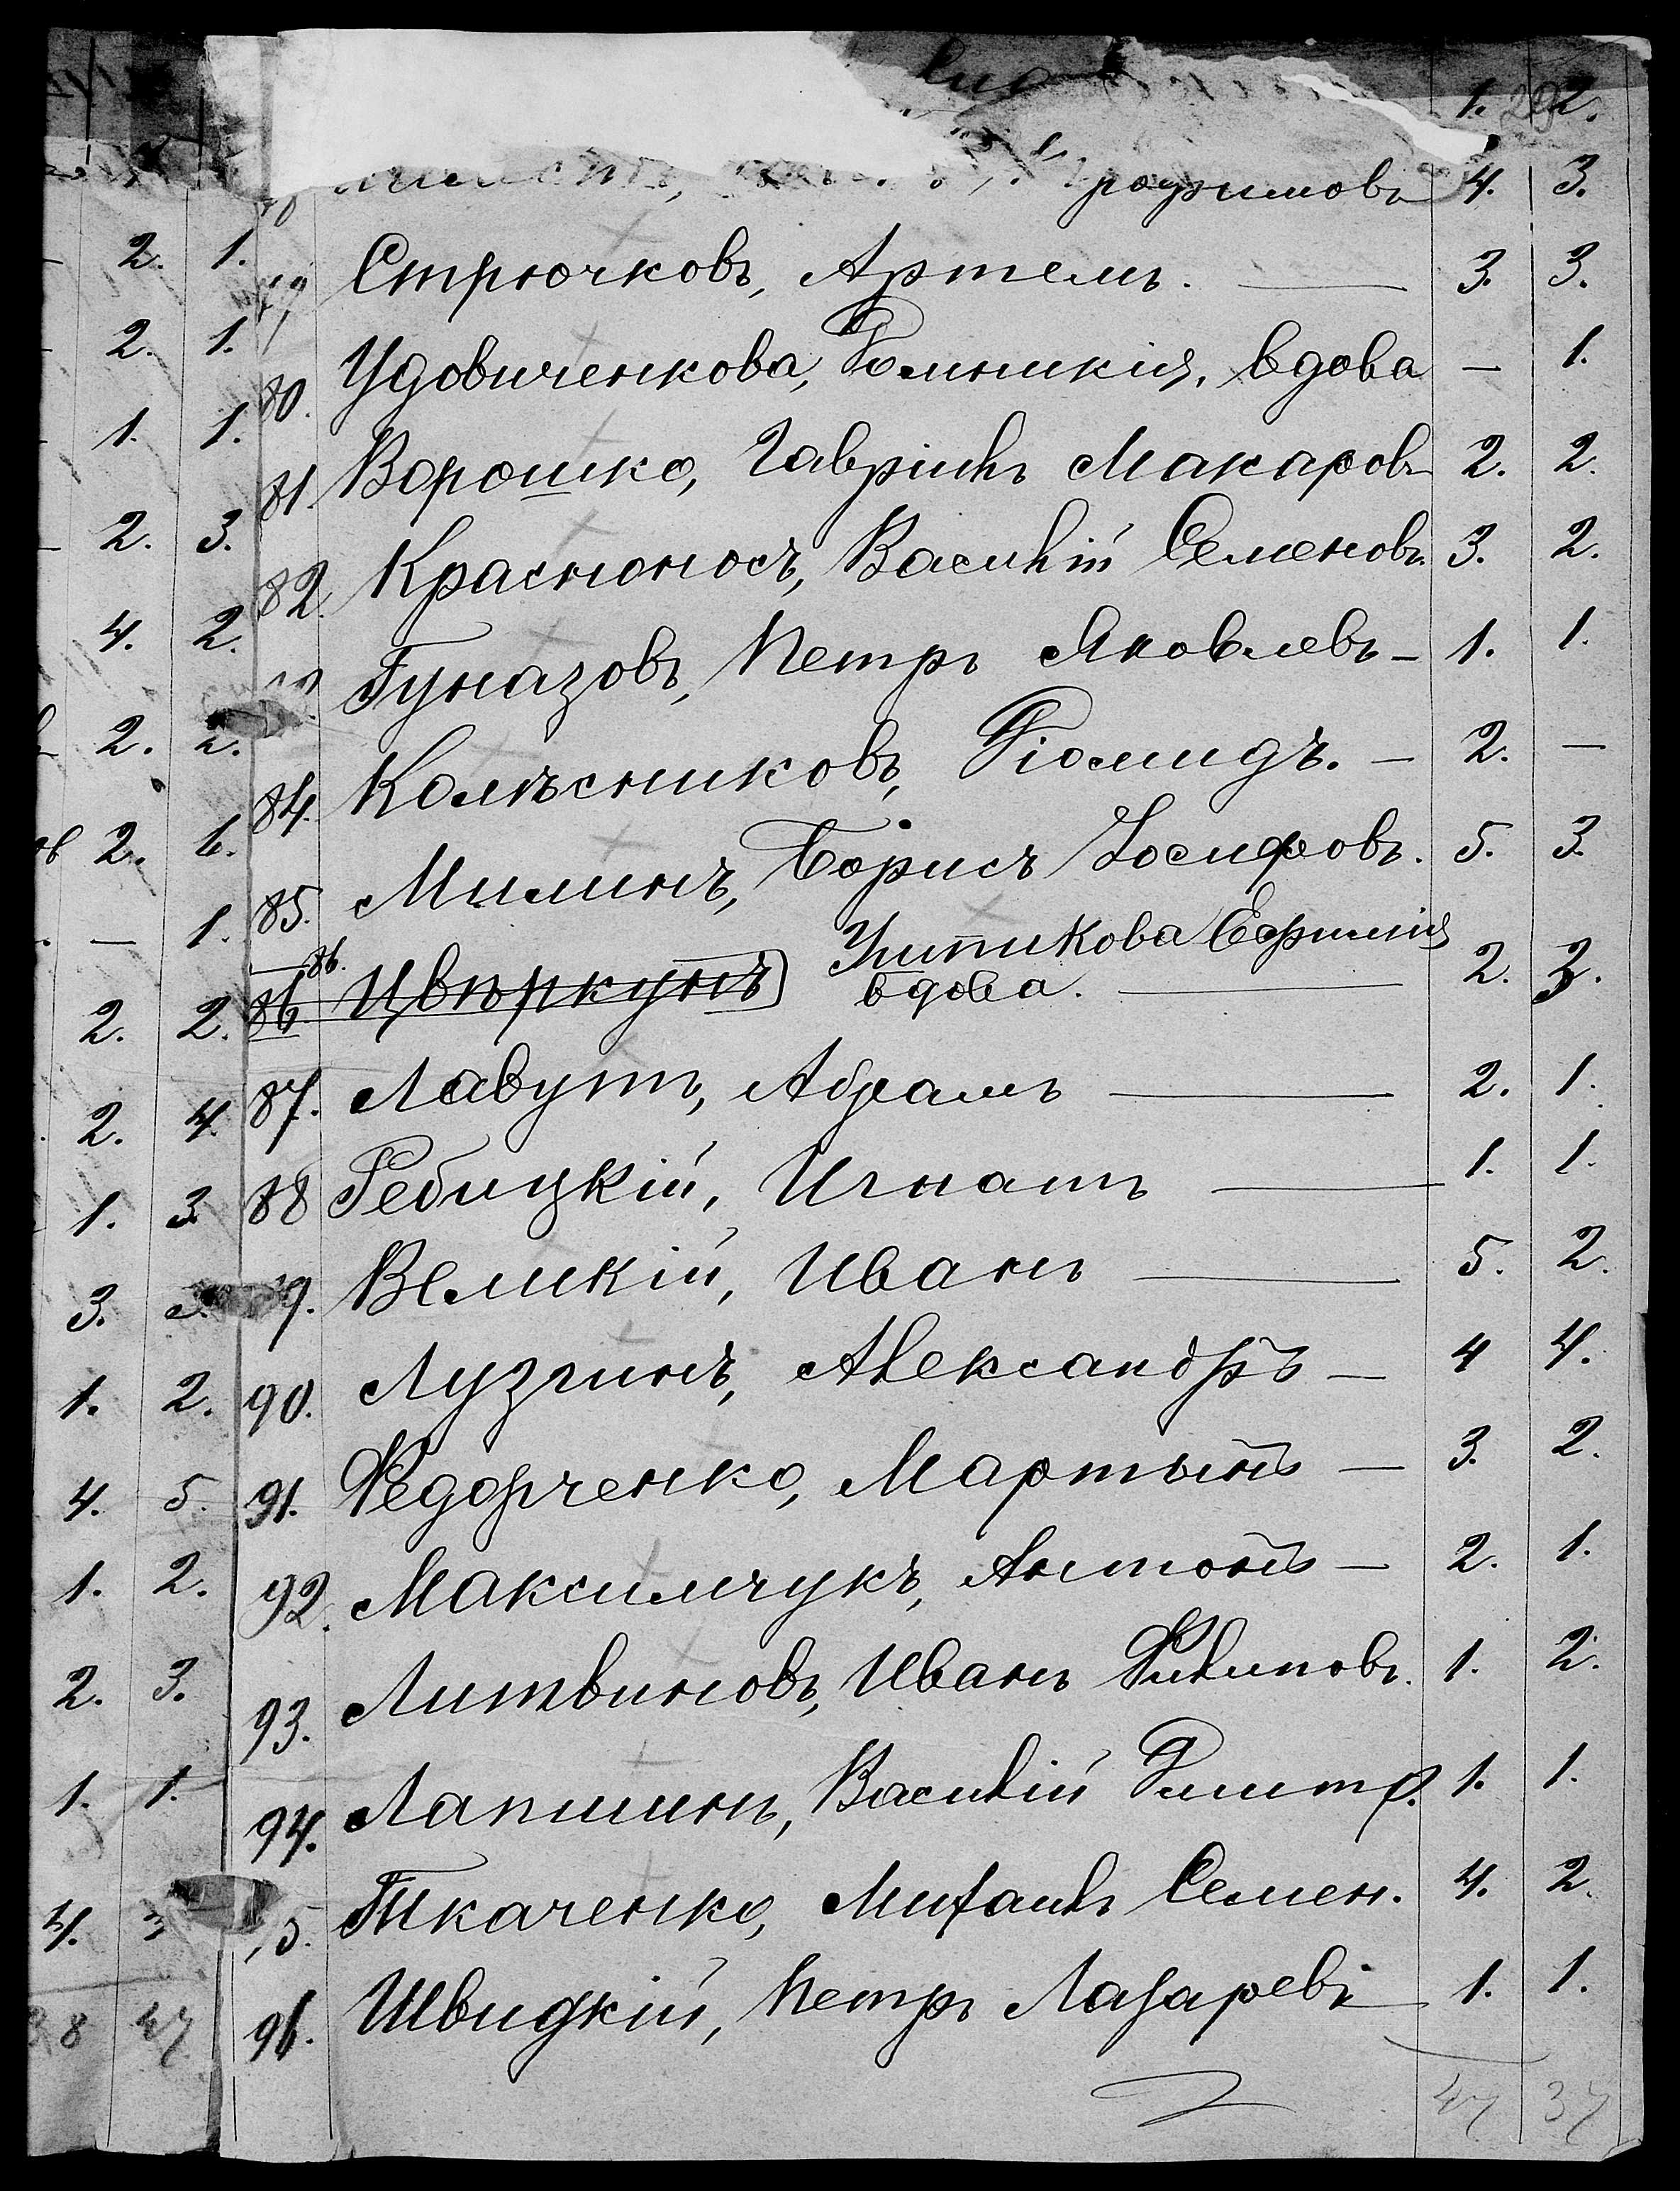 1. 2.
4. 3.
Стрючковъ, Артемъ. — 3. 3.
80. Удовиченкова, вдова — 1.
81. Ворошко, Гавріилъ Макаровъ 2. 2.
82. Красноносъ, Василій Семеновъ. 3. 2.
Гуназовъ, Петръ Яковлевъ — 1. 1.
84. Колѣсниковъ, Діомидъ. — 2. —
85. Милинъ, Борисъ Іосифовъ. 5. 3.
86. Цвѣркунъ Ефимія
86. вдова. — 2. 3.
87. Лавутъ, Абрамъ — 2. 1.
88 Ребицкій, Игнатъ — 1. 1.
89. Великій, Иванъ — 5. 2.
90. Лузгинъ, Александръ — 4 4.
91. Федорченко, Мартынъ — 3. 2.
92. Максимчукъ, Антонъ — 2. 1.
93. Литвиновъ, Иванъ Филиповъ. 1. 2.
94. Лапшинъ, Василій Дмитр. 1. 1.
95. Ткаченко, Михаилъ Семен. 4. 2.
96. Швидкій, Петръ Лазаревъ 1. 1.
47 37
2. 1.
2. 1.
1. 1.
2. 3.
4. 2.
2. 2.
2. 1.
— 1.
2. 2.
2. 4.
1. 3
3.
1. 2.
4. 5.
1. 2.
2. 3.
1. 1.
4. 3